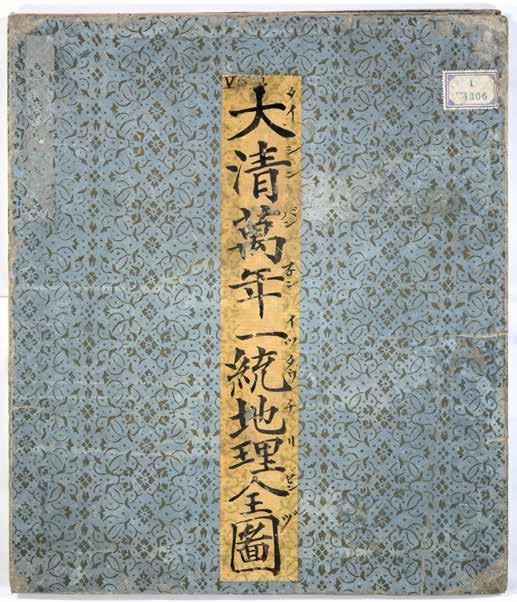 大清萬年一統地理全圖
タイシンバンネンイツタウチリゼンヅ
1
4306